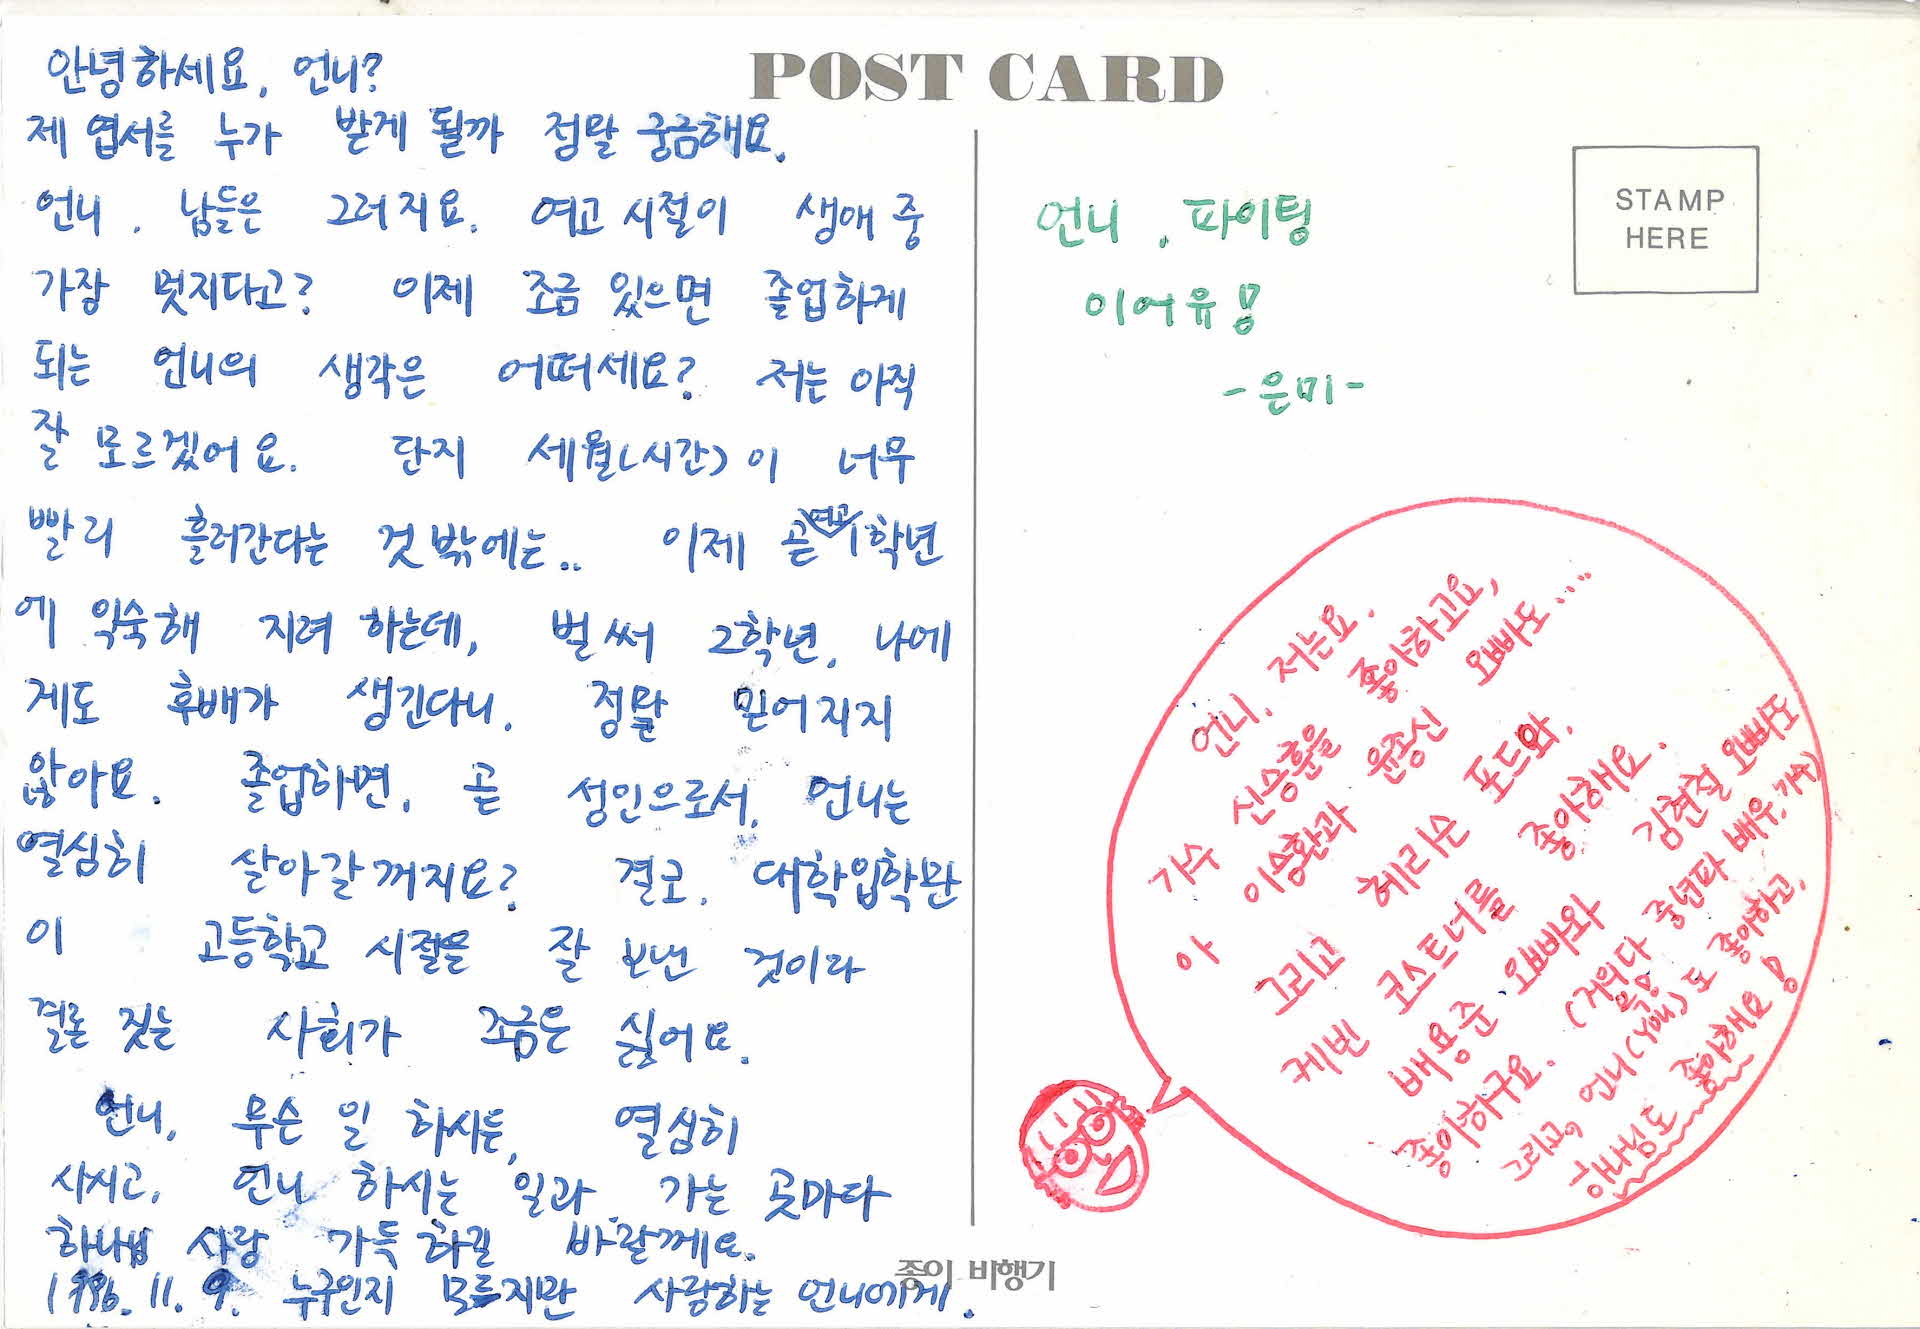 POST CARD
STAMP
HERE
안녕하세요, 언니?
제 엽서를 누가 받게 될까 정말 궁금해요.
언니. 남들은 그러지요. 여고시절이 생애 중
가장 멋지다고? 이제 조금 있으면 졸업하게
되는 언니의 생각은 어떠세요? 저는 아직
잘 모르겠어요. 단지 세월(시간)이 너무
빨리 흘러간다는 것 밖에는.. 이제 곧 여고 1학년
에 익숙해 지려 하는데, 벌써 2학년. 나에
게도 후배가 생긴다니. 정말 믿어지지
않아요. 졸업하면, 곧 성인으로서, 언니는
열심히 살아갈꺼지요? 결코, 대학입학만
이 고등학교 시절을 잘 보낸 것이라
결론 짓는 사회가 조금은 싫어요.
언니, 무슨 일 하시든, 열심히
사시고, 언니 하시는 일과 가는 곳마다
하나님 사랑 가득 하길 바랄께요.
1996. 11. 9. 누구인지 모르지만 사랑하는 언니에게.
언니. 파이팅
이어유!
-은미-
언니. 저는요.
가수 신승훈을 좋아하고요,
아 이승환과 윤종신 오빠도....
그리고 헤리슨 포드와.
케빈 코스트너를 좋아해요.
배용준 오빠와 김현철 오빠도
좋아하구요. (귀윅당 중년파 배우, 가수)
그리고, 언니(You)도 좋아하고,
하나님도 좋아해요!
종이 비행기